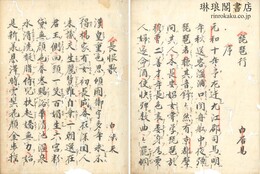 琳琅閣書店
rinrokaku.co.jp
琵琶行
序
白居易
元和十年予左遷九江郡司馬明
年秋送客湓浦口聞舟船中夜彈
琵琶者聽其音錚錚然有京都聲
問其人本長安倡女嘗學琵琶於
穆曹二善才年長色衰委身為賈
人婦遂命酒使快彈數曲曲罷憫
長恨歌
白樂天
漢皇重色思傾國御宇多年求不
得楊家有女初長成養在深閨人
未識天生麗質難自棄一朝選在
君王側回眸一笑百媚生六宮粉
黛無顏色春寒賜浴華清池溫泉
水滑洗凝脂侍兒扶起嬌無力始
是新承恩澤時雲鬢花顏金步搖